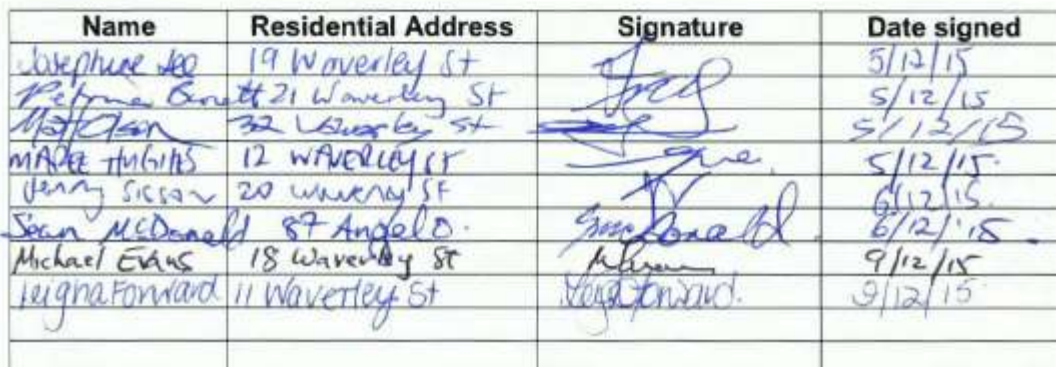 Name Residential Address Signature Date signed
Josephine Lee 19 Waverley St 5/12/15
Bennett 21 Waverley St 5/12/15
Matt Olson 32 Waverley St 5/12/15
MAREE HUGHES 12 WAVERLEY ST 5/12/15
Jenny Sisson 20 Waverley St 6/12/15
Sean McDonald 87 Angelo. 6/12/15
Michael Evans 18 Waverley St 9/12/15
Forward 11 Waverley St 9/12/15